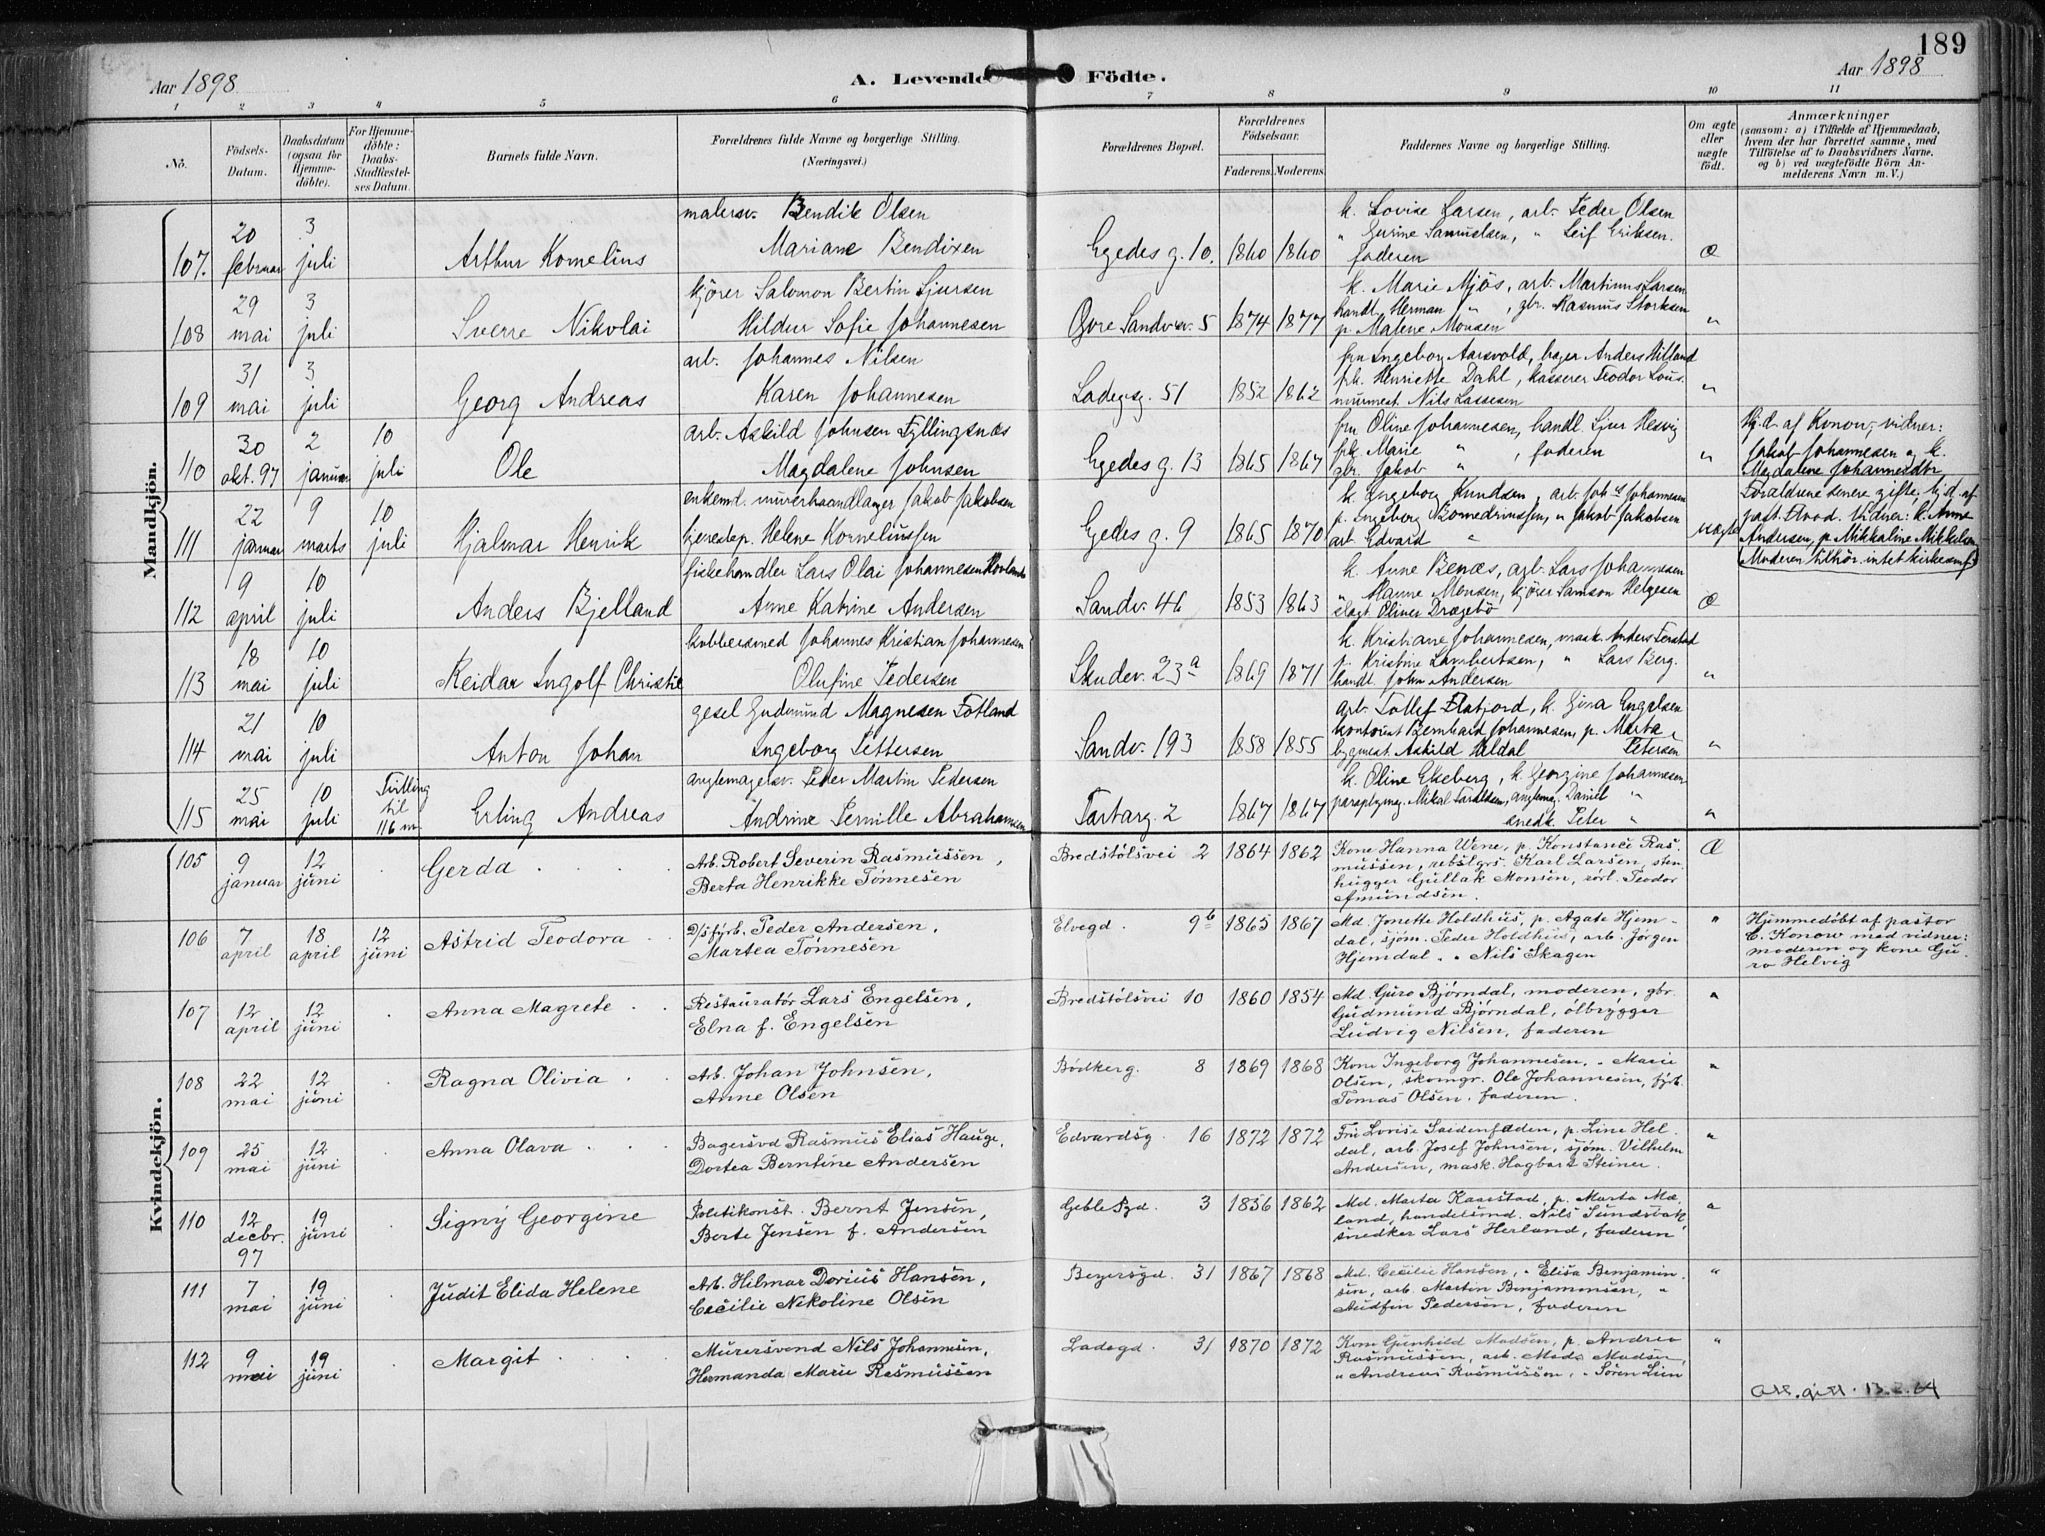 189
Aar 1898 A. Levende Födte. Aar 1898
1 2 3 4 5 6 7 8 9 10 11
No. Födsels-Datum. Daabsdatum (ogsaa for Hjemmedöbte). For Hjemmedöbte: Daabs-Stadfæstelses Datum. Barnets fulde Navn. Forældrenes fulde Navne og borgerlige Stilling. (Næringsvei.) Forældrenes Bopæl. Forældrenes Födselsaar. Faderens. Moderens. Faddernes Navne og borgerlige Stilling. Om ægte eller uægte födt. Anmærkninger (saasom: a) i Tilfælde af Hjemmedaab, hvem der har forrettet samme, med Tilföielse af to Daabsvidners Navne, og b) ved uægtefödte Börn Anmelderens Navn m. V.)
Mandkjön.
107. 20 februar 3 juli Arthur Kornelius
malersv. Bendik Olsen
Mariane Bendixen
Egedes g. 10. 1860 1860
k. Lovise Larsen, arb. Peder Olsen
" Gurine Samuelsen, " Leif Eriksen.
faderen
Æ
108 29 mai 3 juli Sverre Nikolai
kjører Salomon Bertin Sjursen
Hildur Sofie Johannesen
Øvre Sandvw. 5 1874 1877
k. Marie Mjøs, arb. Martinus Larsen
handl. Herman " , gbr. Rasmus Storksen
p. Malene Monsen
"
109 31 mai 3 juli Georg Andreas
arb. Johannes Nilsen
Karen Johannesen
Ladegsg. 51 1852 1862
fru Ingeborg Aarsvold, bager Anders Hilland
frk. Henriette Dahl, kasserer Teodor Lous.
murmest. Nils Lassesen
"
110 30 okt. 97 2 januar 10 juli Ole
arb. Askild Johnsen Fyllingsnæs
Magdalene Johnsen
Egedes g. 13 1865 1867
fru Oline Johannesen, handl. Sjur Hesvig
frk. Marie " , faderen
gbr. Jakob "
"
Hj.d. af Konow, vidner:
Jakob Johannesen og k.
Magdalene Johannesdtr.
111 22 januar 9 marts 10 juli Hjalmar Henrik
enkemd. murerhaandlanger Jakob Jakobsen
tjenestep. Helene Korneliussen
Egedes g. 9 1865 1870
k. Ingeborg Knudsen, arb. Johs Johannesen
p. Ingeborg " Jakob Jakobsen
arb. Edvard "
uægte
Forældrene senere gifte. Hj.d. af
past. Flood. Vidner: k. Anne
Andersen, p. Mikkaline Mikkelsen
Moderen tilhør. intet kirkesamf.
112 9 april 10 juli Anders Bjelland
fiskehandler Lars Olai Johannesen Hovland
Anne Katrine Andersen
Sandv. 46 1853 1863
k. Anne Benæs, arb. Lars Johannesen
" Hanne Monsen, kjører Samson Helgesen
slagt. Oliver Drægebø
Æ
113 18 mai 10 juli Reidar Ingolf Christie
kobbersmed Johannes Kristian Johannesen
Olufine Pedersen
Skudev. 23a 1869 1871
k. Kristiane Johannesen, mask. Anders Ferstad
p. Kristine Lambertsen, " Lars Berg.
handl. John Andersen
"
114 21 mai 10 juli Anton Johan
gesel Gudmund Magnesen Totland
Ingeborg Pettersen
Sandv. 193 1858 1855
arb. Tollef Flatjord, k. Gina Engelsen
kontorist Bernhard Johannesen, p. Marta
bygmest. Askild Høldal Petersen
"
115 25 mai 10 juli Tvilling til 116 m. Erling Andreas
anglemagersv. Peder Martin Pedersen
Andrine Pernille Abrahamsen
Tartarg. 2 1867 1867
k. Oline Ekeberg, k. Georgine Johannesen
paraplymg. Mikal Taraldsen, anglemg. Daniel "
snedk. Peter "
"
Kvindekjön.
105 9 januar 12 juni Gerda
Arb. Robert Severin Rasmussen,
Berta Henrikke Tønnesen
Bredstølsvei 2 1864 1862
Kone Hanna Wene, p. Konstance Ras-
mussen, rebslgrs. Karl Larsen, sten
hugger Gullak Monsen, rørl. Teodor
Amundsen.
Æ
106 7 april 18 april 12 juni Astrid Teodora
D/sfyrb. Peder Andersen,
Martea Tønnesen
Elvegd. 9b 1865 1867
Md. Jonette Holdhus, p. Agate Hjem-
dal, sjøm. Peder Holdhus, arb. Jørgen
Hjemdal. " Nils Skagen
"
Hjemmedøbt af pastor
C. Konow med vidner:
moderen og kone Gu
ro Helvig
107 12 april 12 juni Anna Magrete
Restauratør Lars Engelsen,
Elna f. Engelsen
Bredstølsvei 10 1860 1854
Md. Guro Bjørndal, moderen, gbr.
Gudmund Bjørndal, ølbrygger
Ludvig Nilsen, faderen
"
108 22 mai 12 juni Ragna Olivia
Arb. Johan Johnsen,
Anne Olsen
Bødkerg. 8 1869 1868
Kone Ingeborg Johannesen, " Marie
Olsen, skomgr. Ole Johannesen, fyrb.
Tomas Olsen. faderen.
"
109 25 mai 12 juni Anna Olava
Bagersvd Rasmus Elias Hauge,
Dortea Berntine Andersen
Edvardsg. 16 1872 1872
Fru Lovise Seidenfaden, p. Line Hel-
dal, arb. Josef Johnsen, sjøm. Vilhelm
Andersen, mask. Hagbart Steiner.
"
110 12 decbr. 97 19 juni Signy Georgine
Politikonst. Bernt Jensen,
Berte Jensen f. Andersen
Geble Pgd. 3 1856 1862
Md. Marta Kaarstad, p. Marta Mæ-
land, handelsmd. Nils Sundsbak,
snedker Lars Herland, faderen
"
111 7 mai 19 juni Judit Elida Helene
Arb. Hilmar Dorius Hansen,
Cecilie Nikoline Olsen
Beyersgd. 31 1867 1868
Md. Cecilie Hansen, " Elisa Benjamin
sen, arb. Martin Benjaminsen, "
Audfin Pedersen, faderen
"
112 9 mai 19 juni Margit
Murersvend Nils Johannesen,
Hermanda Marie Rasmussen
Ladegd. 31 1870 1872
Kone Gunhild Madsen, p. Andrea
Rasmussen, arb. Mads Madsen,
" Andreas Rasmussen, " Søren Lien
"
Att. gitt. 13.2.64